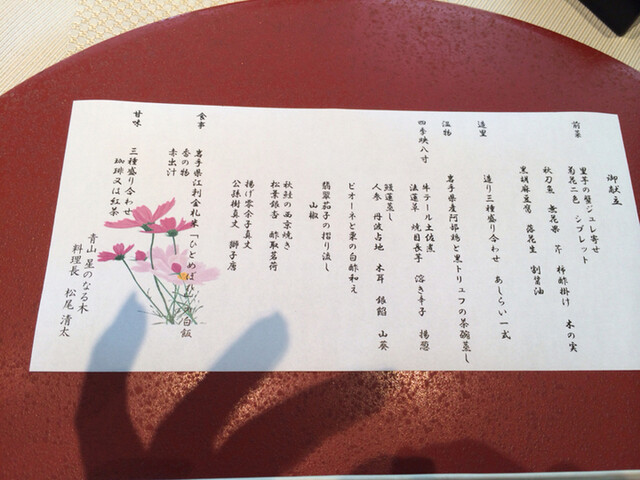 御献立
前菜
里芋の蟹ジュレ寄せ
菊花二色 シブレット
秋刀魚 無花果 芹 柿酢掛け 木の実
黒胡麻豆腐 落花生 割醤油
造里
造り三種盛り合わせ あしらい一式
温物
岩手県産阿部鶏と黒トリュフの茶碗蒸し
四季映八寸
牛テール土佐煮
法蓮草 焼目長芋 溶き辛子 揚葱
鰻蓮蒸し
人参 丹波占地 木耳 銀餡 山葵
ピオーネと栗の白酢和え
翡翠茄子の摺り流し
山椒
秋鮭の西京焼き
松葉銀杏 酢取茗荷
揚げ零余子真丈
公孫樹真丈 獅子唐
食事
岩手県江刺金札米「ひとめぼれ」の白飯
香の物
赤出汁
甘味
三種盛り合わせ
珈琲又は紅茶
青山 星のなる木
料理長 松尾 清太